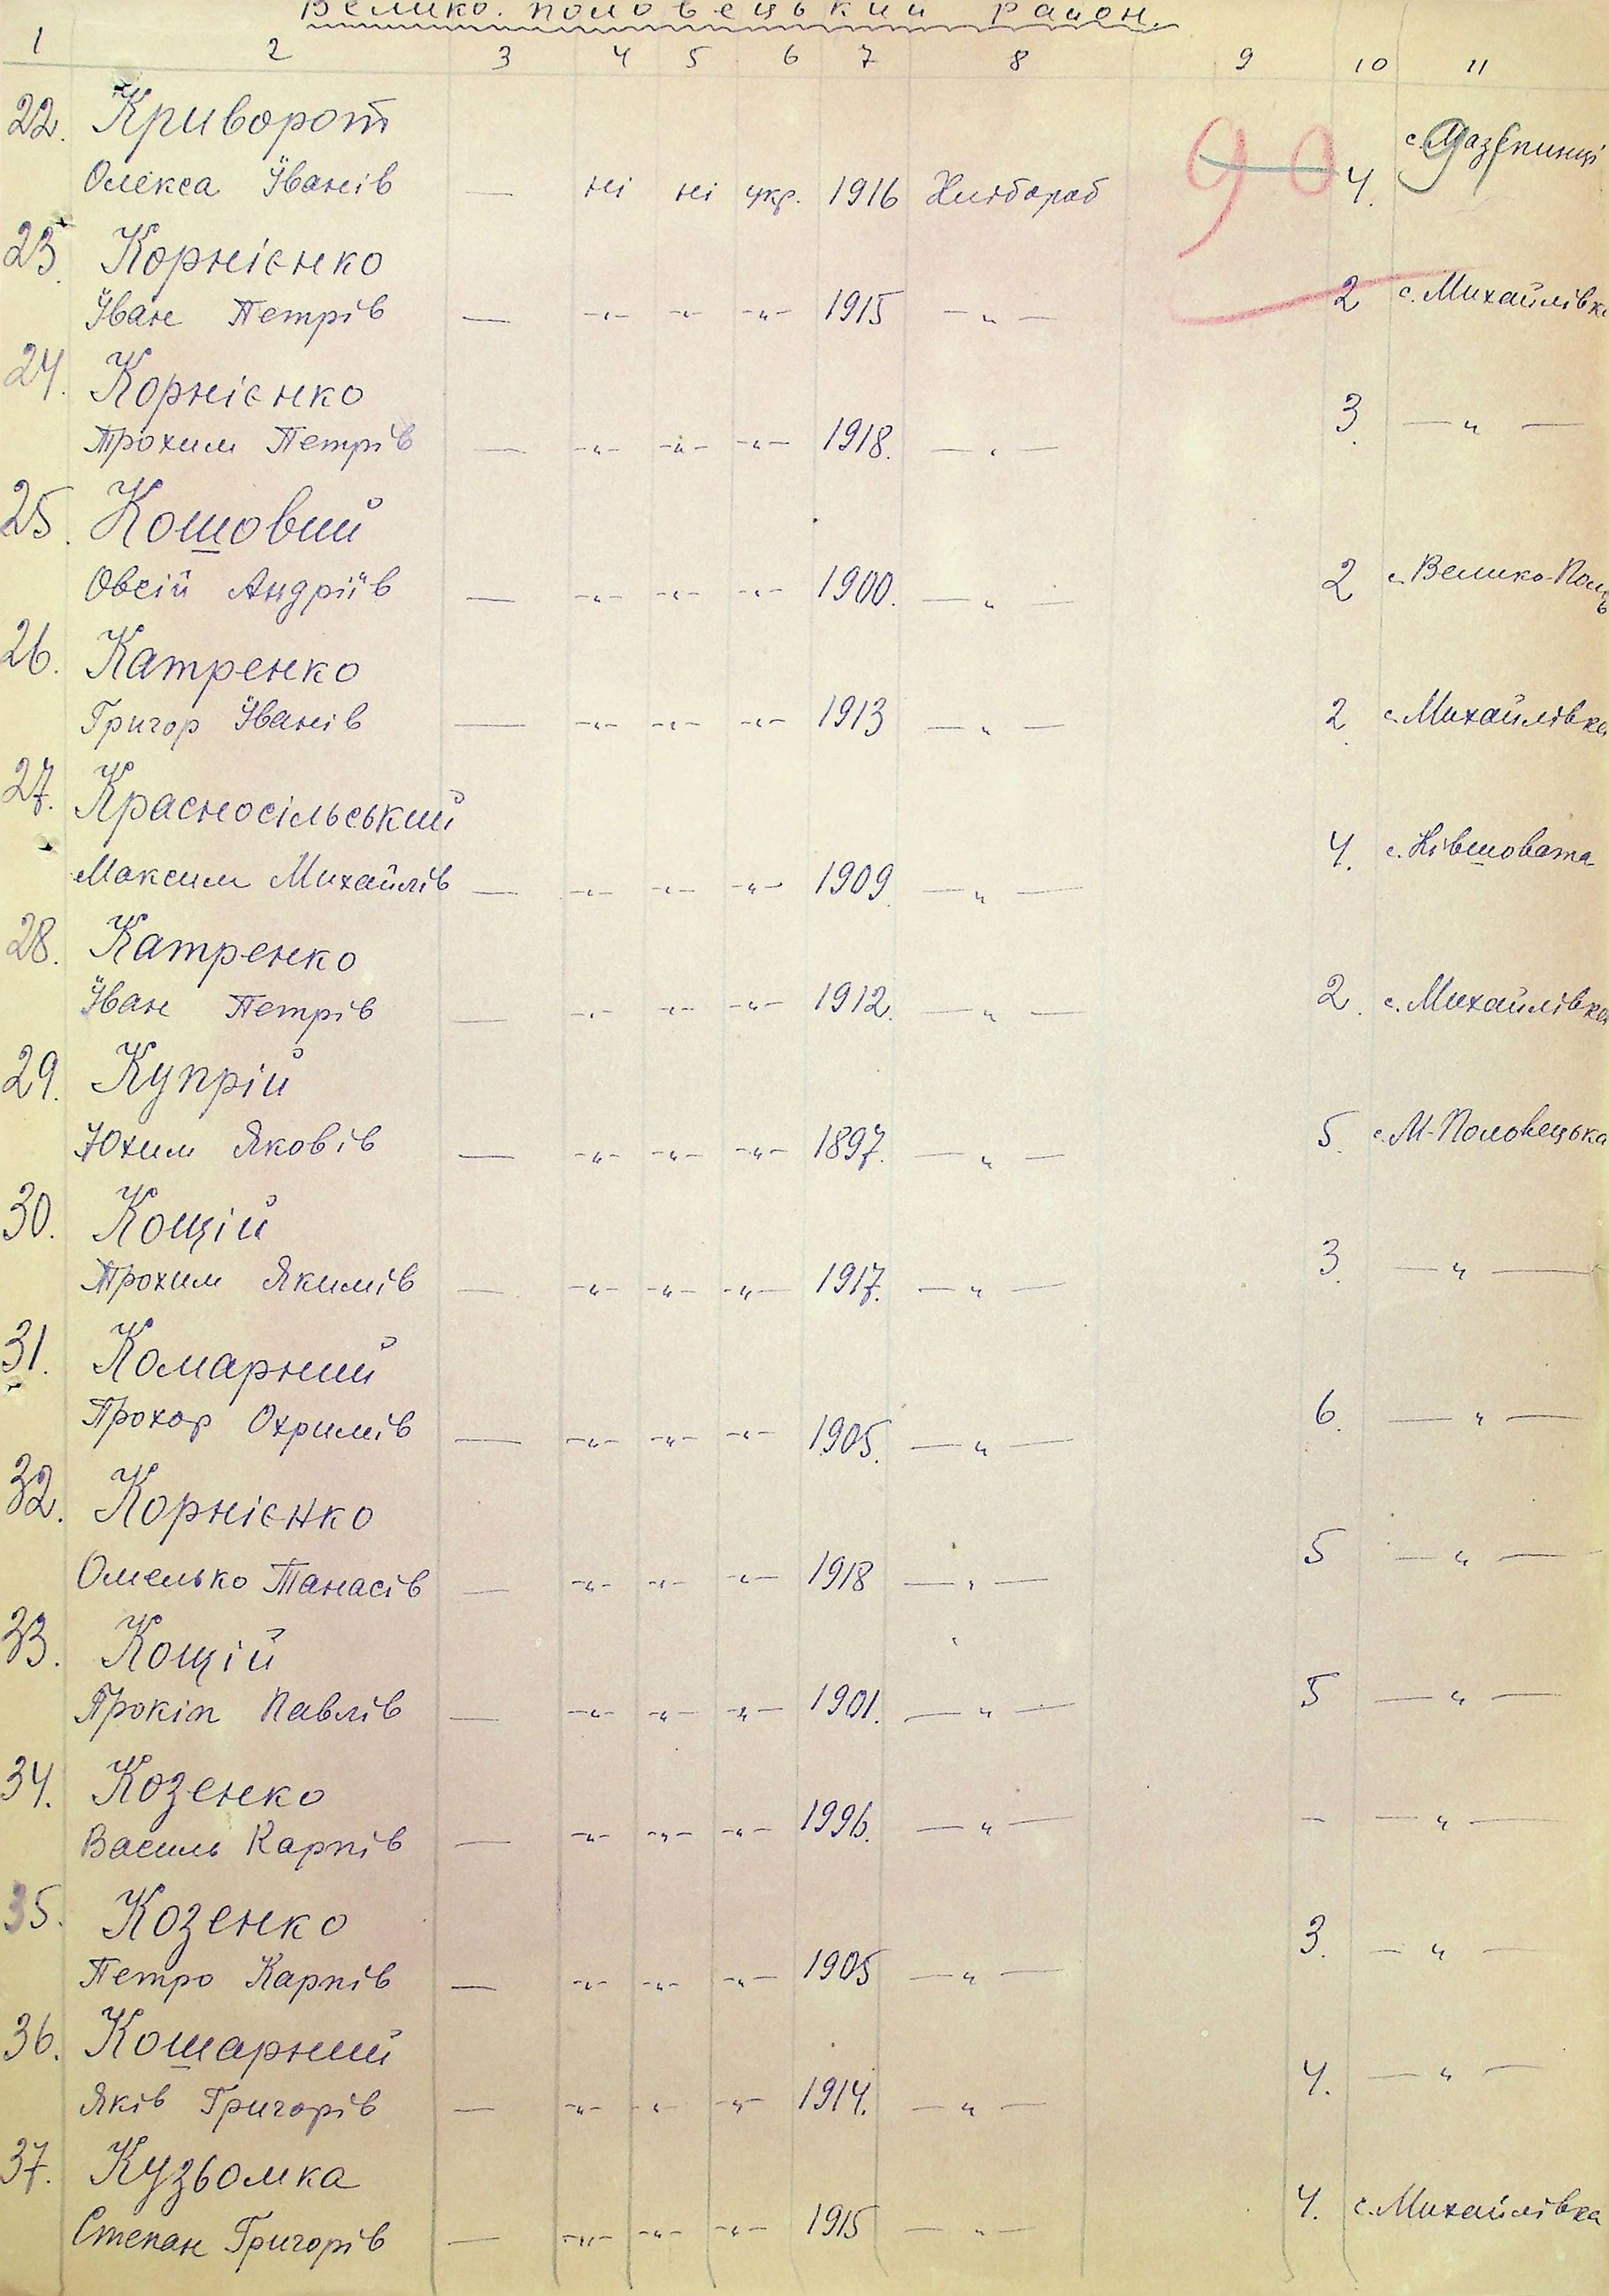 Велико-половецький район.
1 2 3 4 5 6 7 8 9 10 11
22. Криворот с. Мазепинці
Олекса Іванів — ні ні укр. 1916 Хлібороб 90 4.
23. Корнієнко
Іван Петрів — -"- -"- -"- 1915 — " — 2 с. Михайлівка
24. Корнієнко
Трохим Петрів — -"- -"- -"- 1918. — " — 3. — " —
25. Кошовий
Овсій Андріїв — -"- -"- -"- 1900. — " — 2 с. Велико-Пол
26. Катренко
Григор Іванів — -"- -"- -"- 1913 — " — 2. с. Михайлівка
27. Красносільський
Максим Михайлів — -"- -"- -"- 1909. — " — 4. с. Ківшовата
28. Катренко
Іван Петрів — -"- -"- -"- 1912. — " — 2. с. Михайлівка
29. Купрій
Юхим Яковів — -"- -"- -"- 1897. — " — 5. с. М-Половецька
30. Кощій
Трохим Якимів — -"- -"- -"- 1917. — " — 3. — " —
31. Комарний
Прохор Охримів — -"- -"- -"- 1905. — " — 6. — " —
32. Корнієнко
Омелько Танасів — -"- -"- -"- 1918 — " — 5 — " —
33. Кощій
Прокіп Павлів — -"- -"- -"- 1901. — " — 5 — " —
34. Козенко
Василь Карпів — -"- -"- -"- 1996. — " — - — " —
35. Козенко
Петро Карпів — -"- -"- -"- 1905 — " — 3. — " —
36. Кошарний
Яків Григорів — -"- -"- -"- 1914. — " — 4. — " —
37. Кузьомка
Степан Григорів — -"- -"- -"- 1915 — " — 4. с. Михайлівка